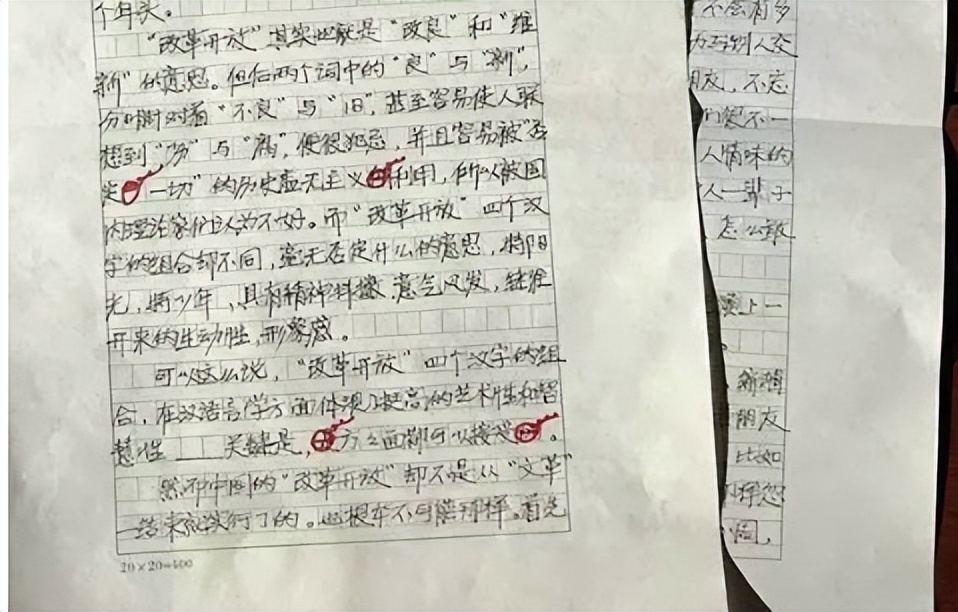 个年头。
"改革开放"其实也就是"改良"和"维
新"的意思。但后两个词中的"良"与"新",
分明针对着"不良"与"旧",甚至容易使人联
想到"污"与"腐",便很犯忌,并且容易被"否
定一切"的历史虚无主义利用,所以被国
内理论家们认为不好。而"改革开放"四个汉
字的组合却不同,毫无否定什么的意思,特阳
光,特少年,具有精神抖擞、意气风发,继往
开来的生动性,形象感。
可以这么说,"改革开放"四个汉字的组
合,在汉语言学方面体现了极高的艺术性和智
慧性——关键是,方方面面都可以接受。
然而中国的"改革开放"却不是从"文革"
一结束就实行了的。也根本不可能那样。首先
20×20=400
不会有多
与别人交
朋友,不忘
们便不一
人情味的
人一辈子
怎么敢
上一
。
朋友
比如
同样